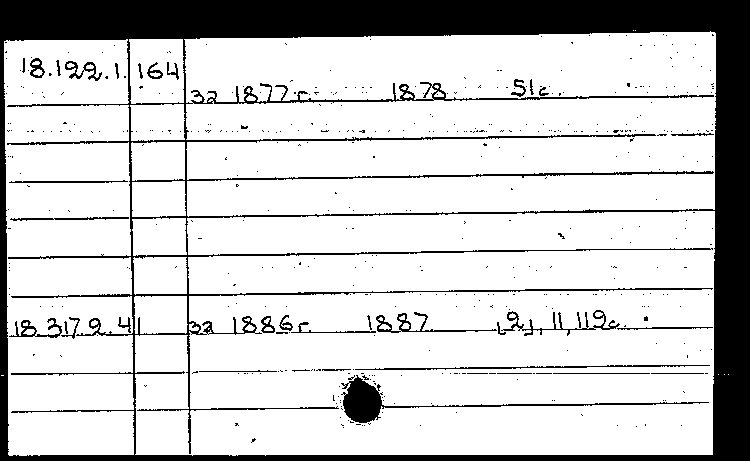 18.122.1.164
за 1877 г. 1878 51с.
18.317.2.41 за 1886 г. 1887 [2], 11, 112с.